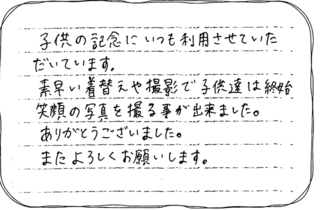 子供の記念にいつも利用させていた
だいています。
素早い着替えや撮影で子供達は終始
笑顔の写真を撮る事が出来ました。
ありがとうございました。
またよろしくお願いします。